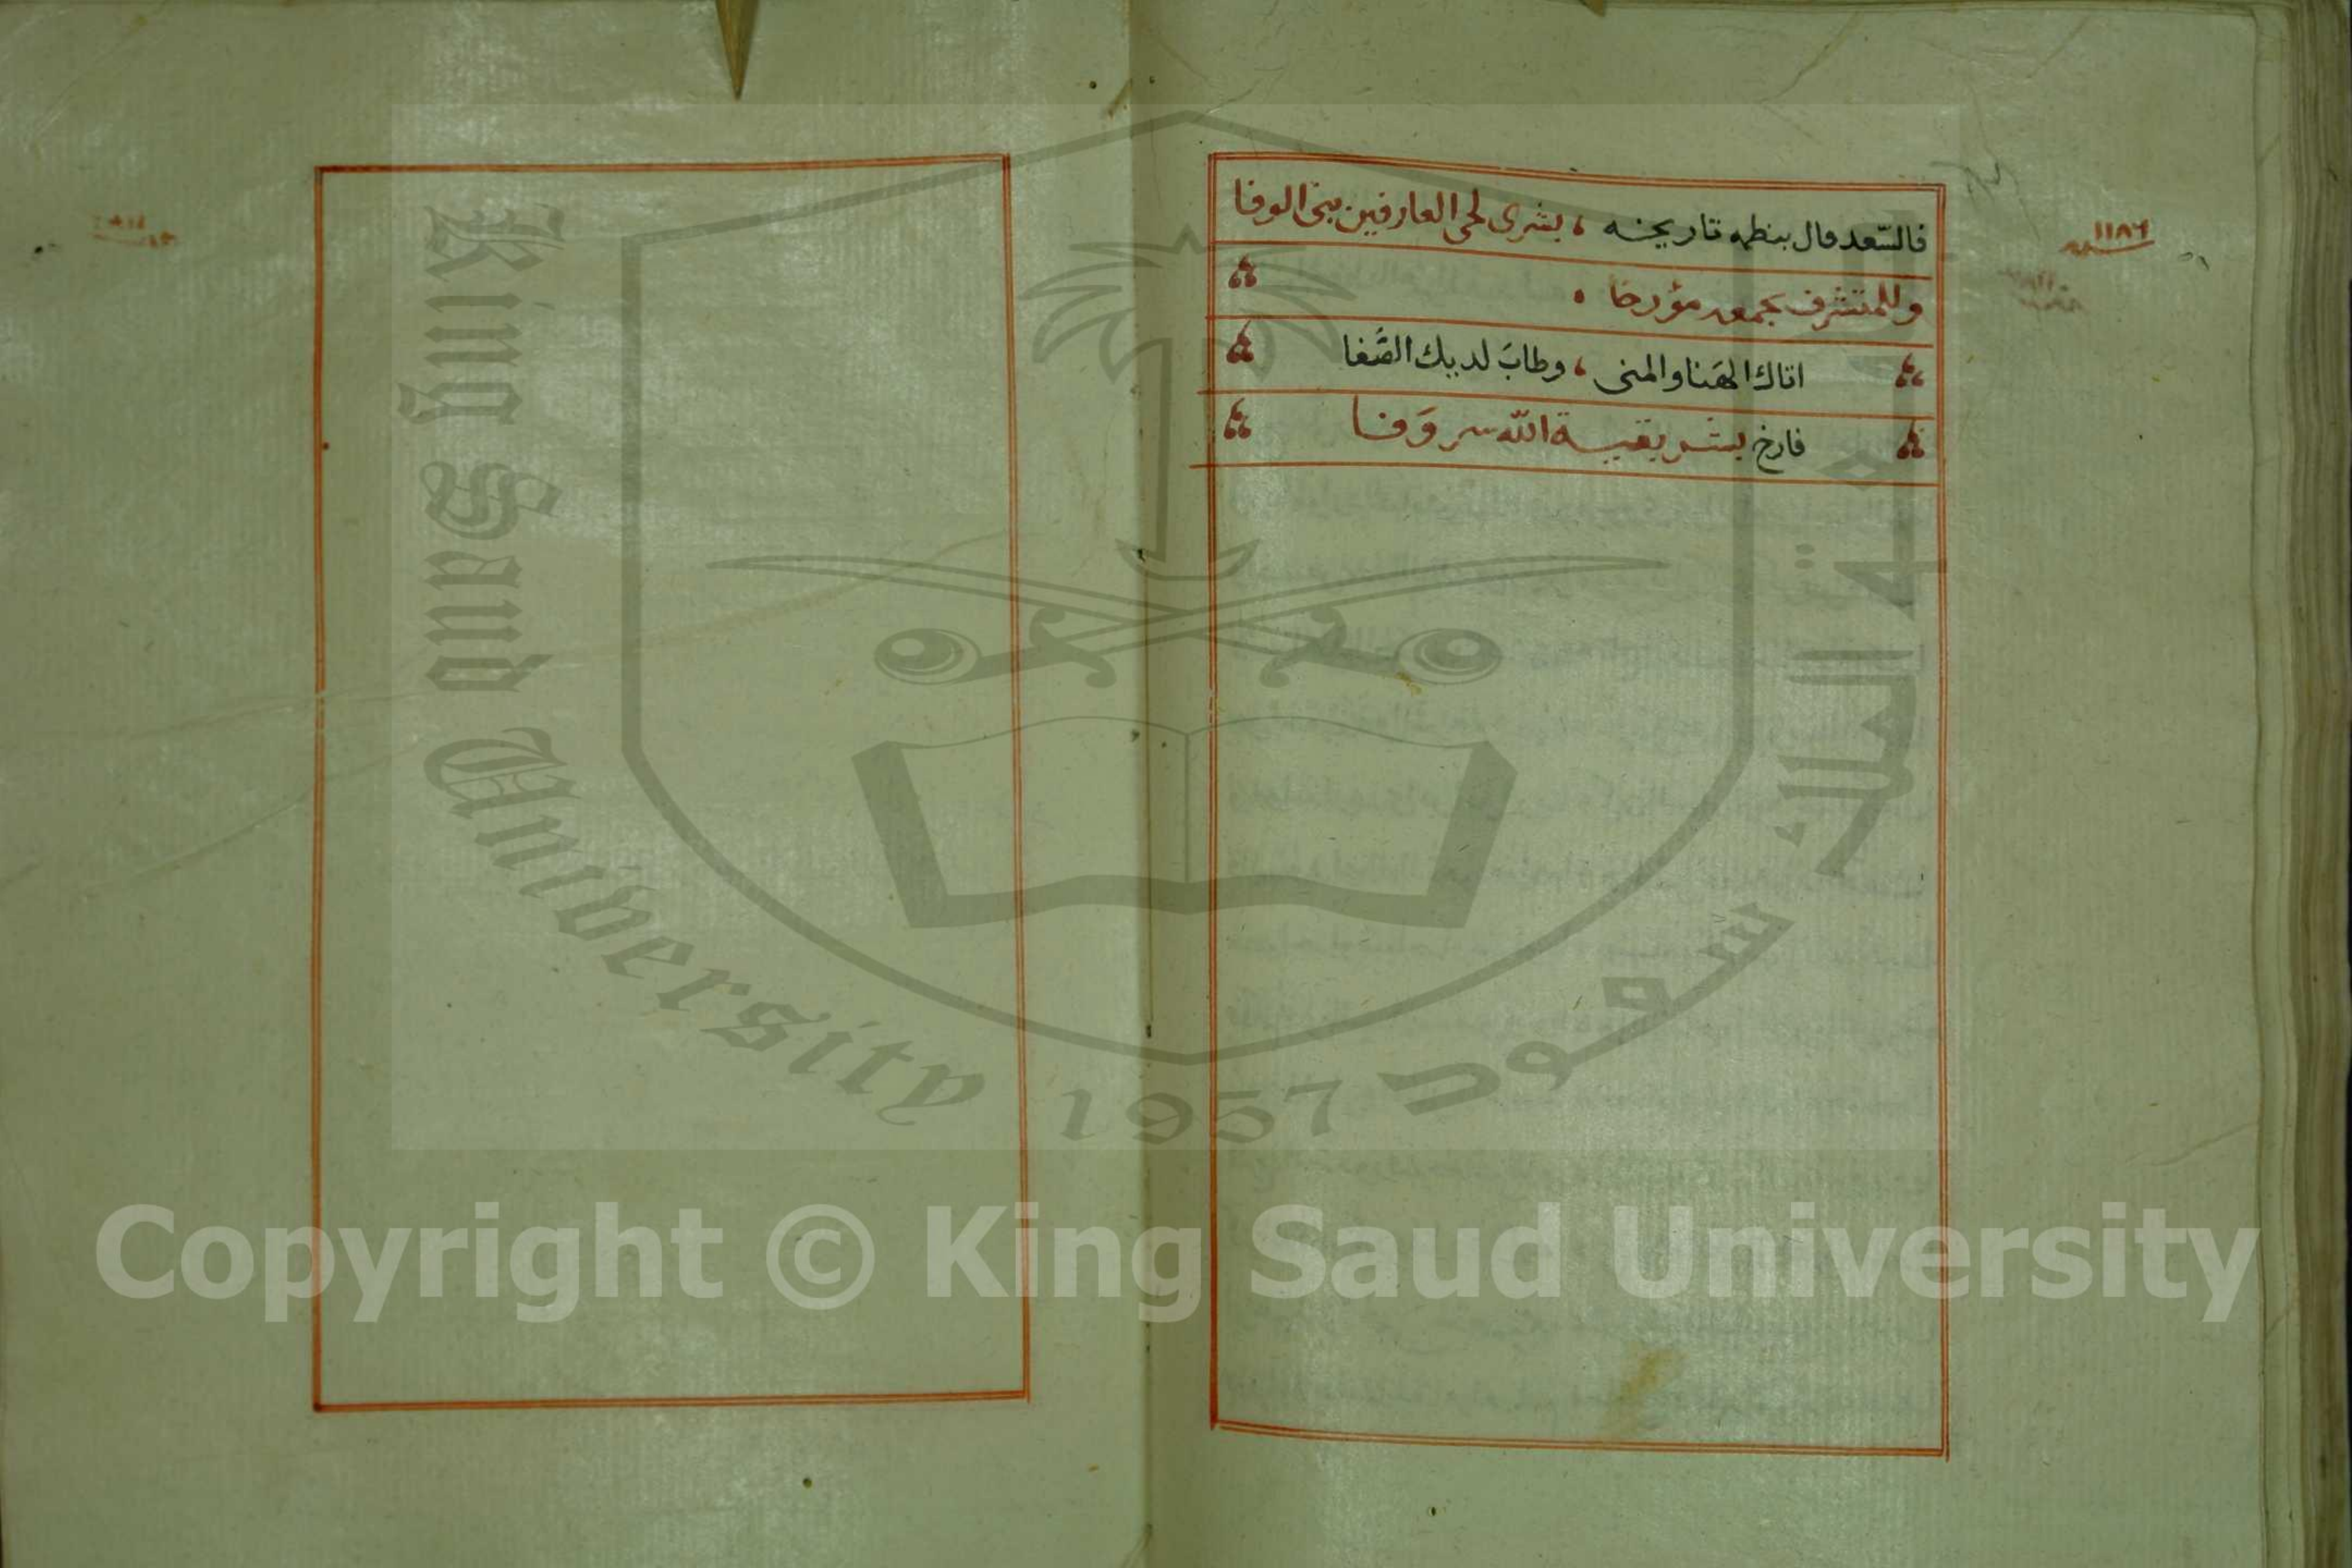 فالسّعد قال بنظمه تاريخه ، بشرى لحى العارفين بنى الوفا
١١٨٦
سنة
وللمتشرف بجمعه مؤرخا .
اتاك الهَنا والمنى ، وطابَ لديك الصَّفا
فارخ بشر بقيـة اللّه سر وَفا
King Saud University
1957
جامعة الملك سعود
Copyright © King Saud University